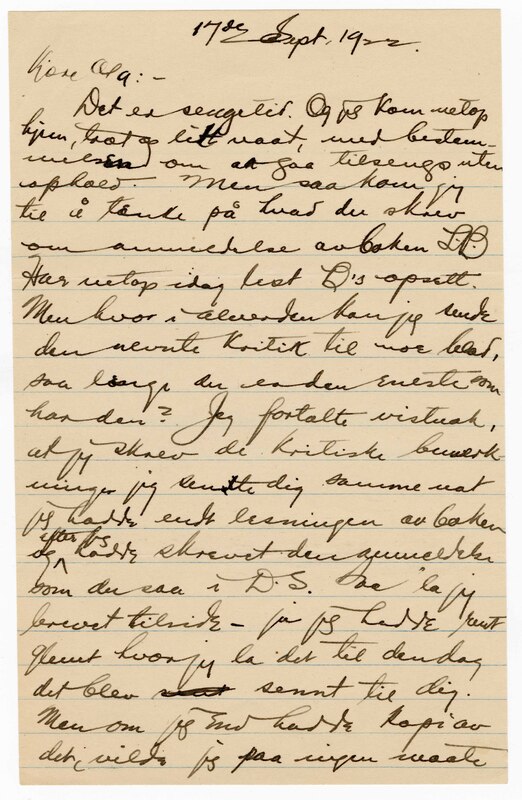 17de Sept. 1922.
Kjære Ola: –
Det er sengetid. Og jeg kom netop
hjem, træt og litt vaat, med bestem-
melsen om at gaa tilsengs uten
ophold. Men saa kom jeg
til å tænke på hvad du skrev
om anmeldelse av boken L.B
Har netop idag lest B's opsett.
Men hvor i alverden kan jeg sende
den nevnte kritik til noe blad,
saa længe du er den eneste som
har den? Jeg fortalte vistnok,
at jeg skrev de kritiske bemerk-
ninger jeg sendte dig samme nat
jeg hadde endt lesningen av boken
efter jeg
og hadde skrevet den anmeldelse
som du saa i D.S. Saa la jeg
brevet tilside – ja jeg hadde rent
glemt hvor jeg la det til den dag
det blev sennt til dig.
Men om jeg end hadde kopi av
det, vilde jeg paa ingen maate